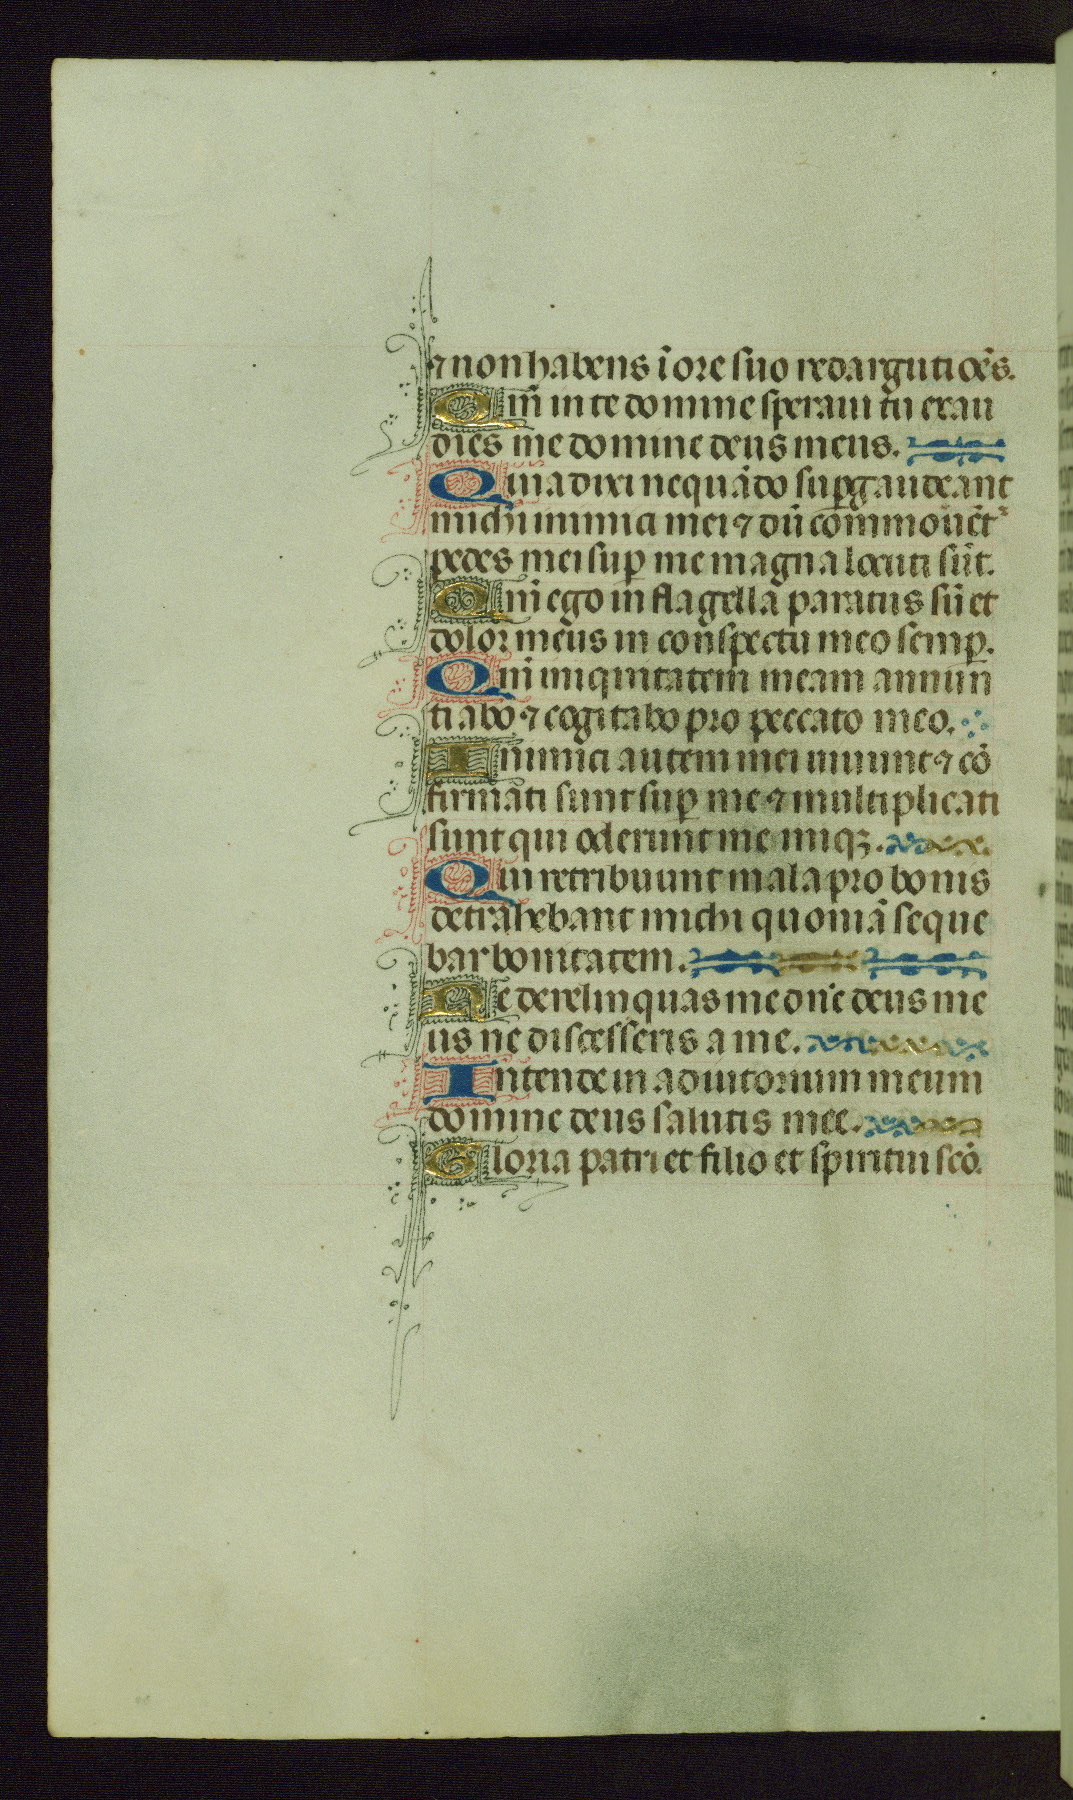 ⁊ non habens ī ore suo redargutiōes.
Qm̄ in te domine speraui tu exau
dies me domine deus meus.
Quia dixi nequādo suꝑgaudeant
michi inimici mei ⁊ dū commouēt᷑
pedes mei suꝑ me magna locuti sūt.
Qm̄ ego in flagella paratus sū et
dolor meus in conspectu meo semꝑ.
Qm̄ iniquitatem meam annun
tiabo ⁊ cogitabo pro peccato meo.
Inimici autem mei uiuunt ⁊ cō
firmati sunt suꝑ me ⁊ multiplicati
sunt qui oderunt me iniqꝫ.
Qui retribuunt mala pro bonis
detrahebant michi quoniā seque
bar bonitatem.
Ne derelinquas me dn̄e deus me
us ne discesseris a me.
Intende in adiutorium meum
domine deus salutis mee.
Gloria patri et filio et spiritui scō.